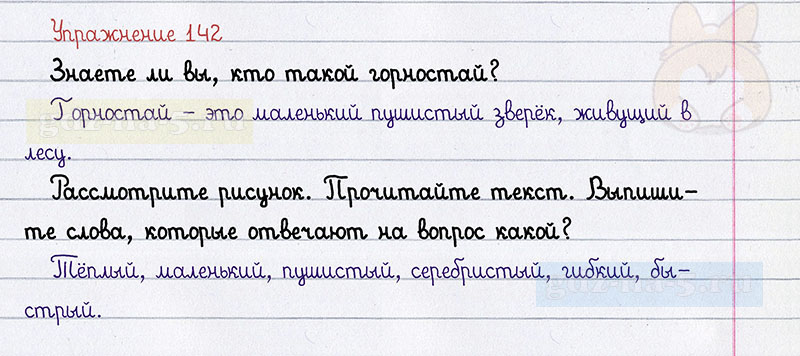 Упражнение 142
Знаете ли вы, кто такой горностай?
Горностай – это маленький пушистый зверёк, живущий в
лесу.
Рассмотрите рисунок. Прочитайте текст. Выпиши–
те слова, которые отвечают на вопрос какой?
Тёплый, маленький, пушистый, серебристый, гибкий, бы–
стрый.
gdz-na-5.ru
gdz-na-5.ru